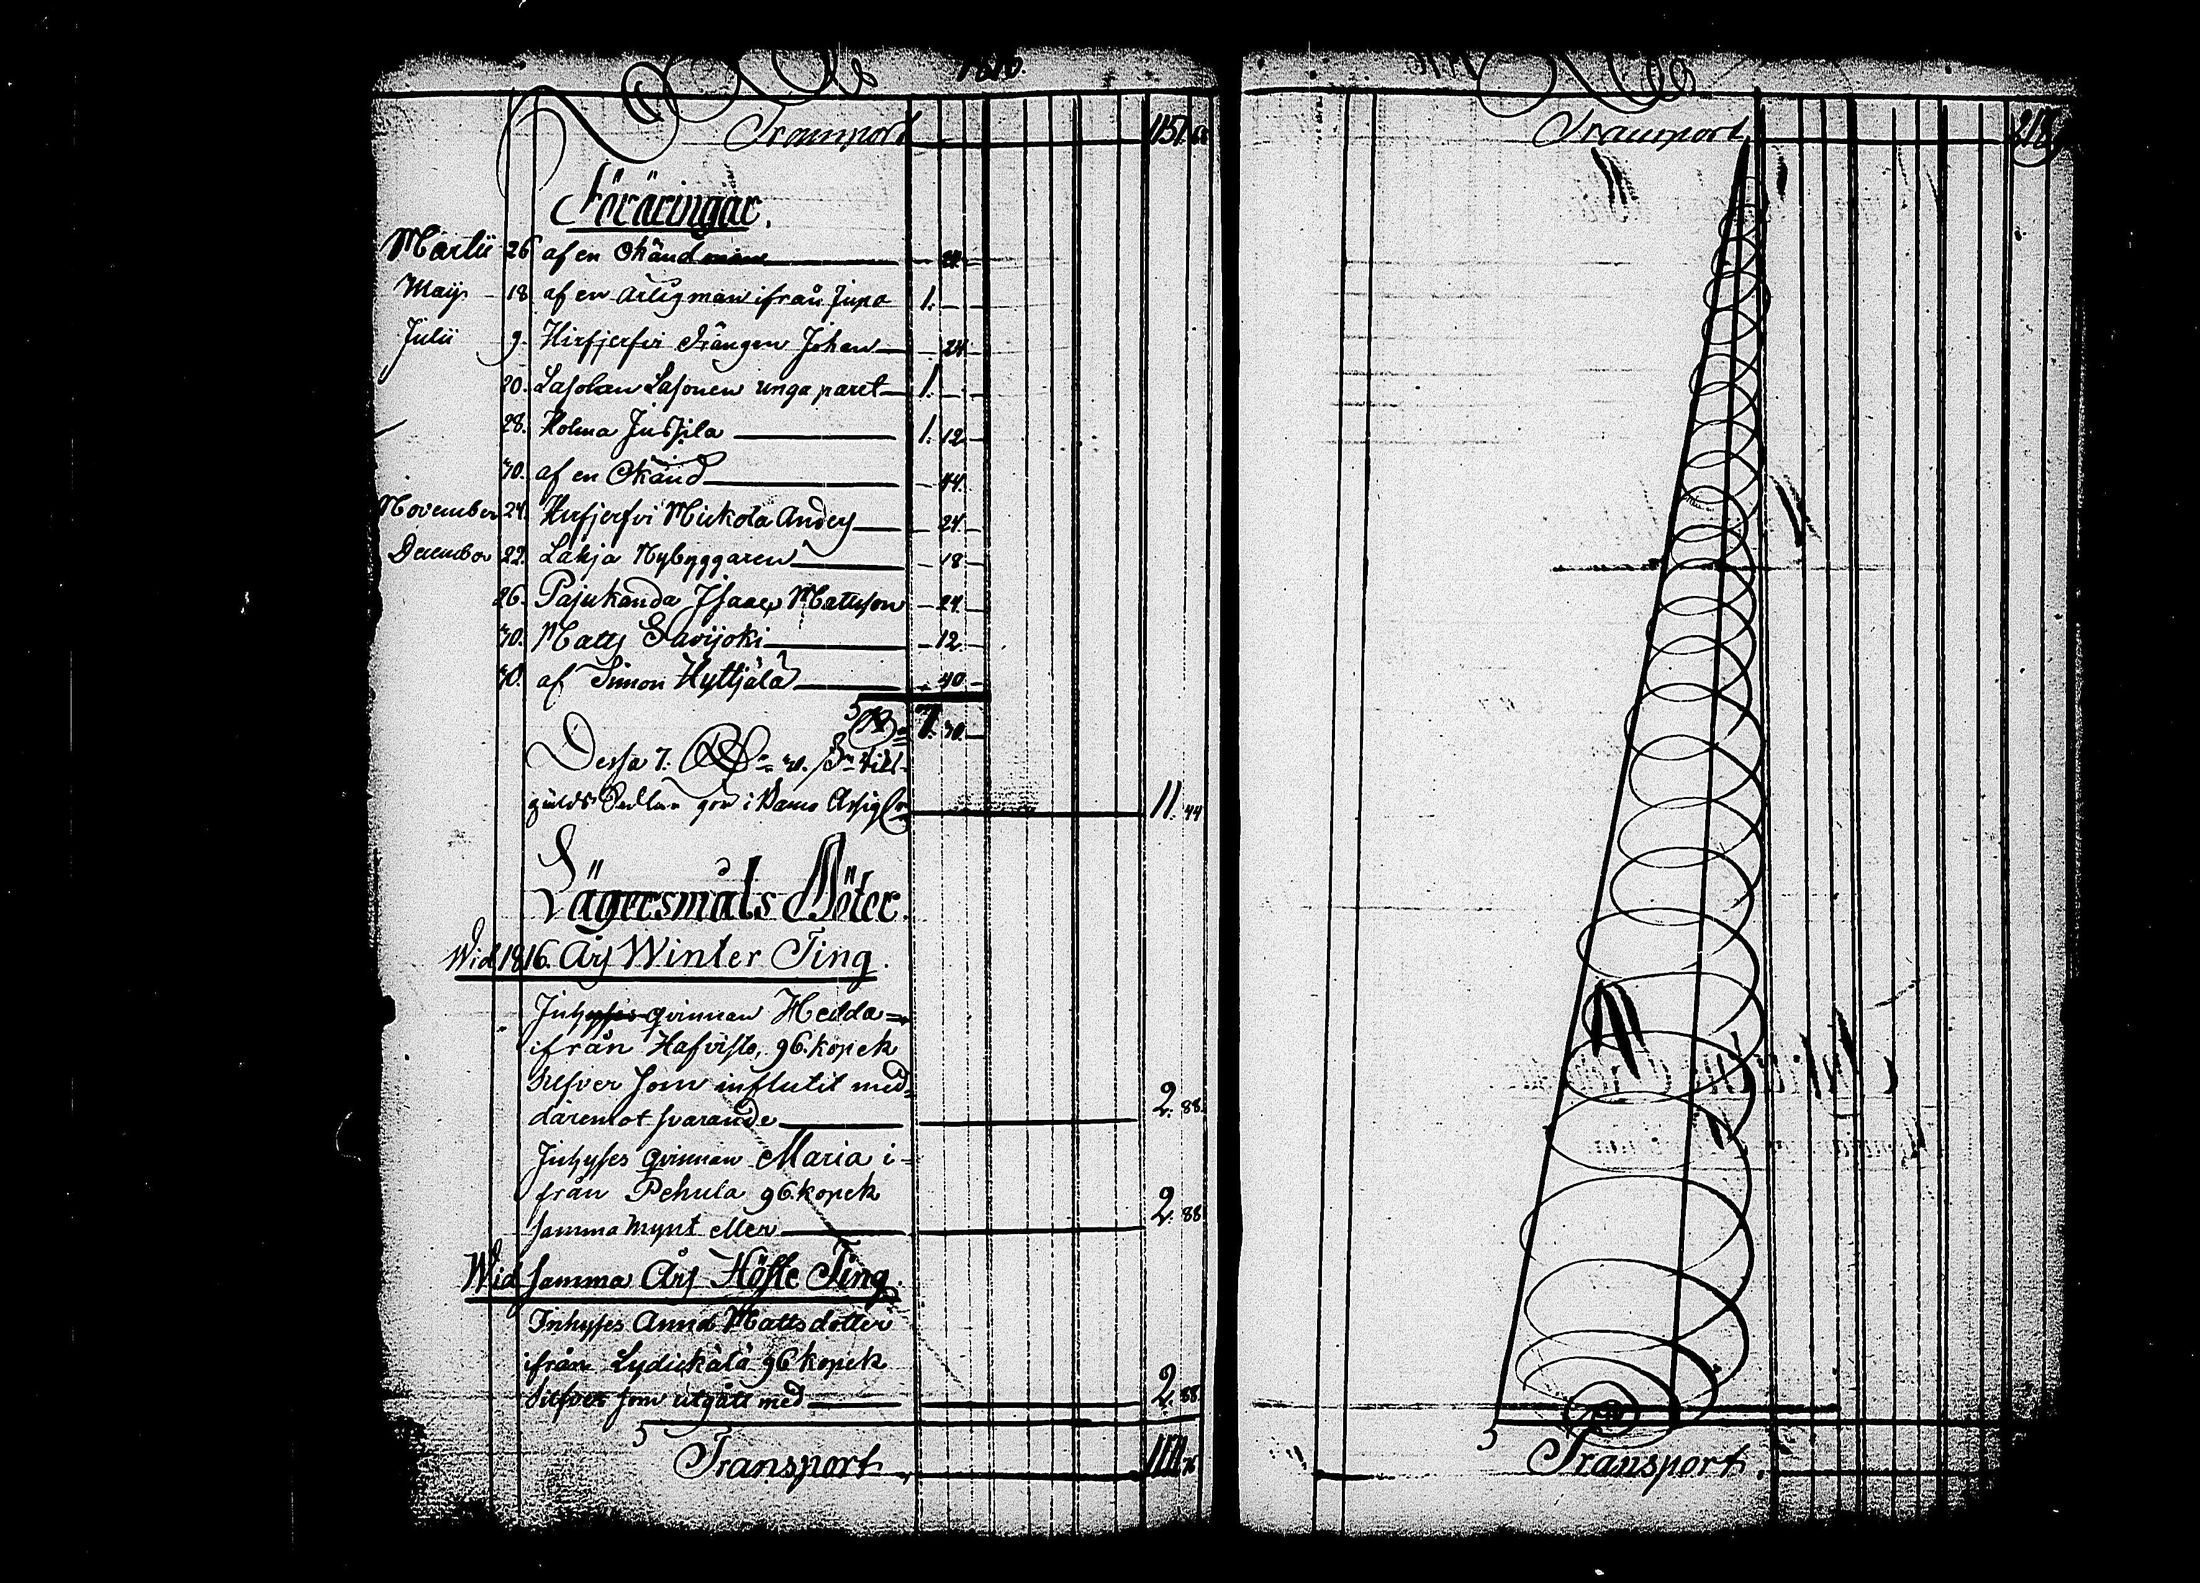 1816.
Transport 1151.
Föräringar.
Martii 26 af en Okänd man — 24 —
Maij 18 af en ärlig man ifrån Jupa 1. — —
Julii 9. Hirfjerfvi Drängen Johan — 24 —
20. Lasolan Lasonen unga paret 1. — —
28. Holma Jussila 1. 12 —
30. af en Okänd — 44. —
November 24. Hirfjerfvi Mickola Anders — 24. —
December 22. Lakja Nybyggaren — 18 —
26. Pajukanda Isaac Mattsson — 24. —
30. Matts Savijoki — 12. —
30. af Simon Hyttjälä — 40. —
S:a R:d 7. 30. —
Dessa 7. Rd. 30. s. till-
gör i Banco Assign. 11. 44
Lägersmåls Böter.
Wid 1816. Års Winter Ting.
Inhyses qvinnan Hedda
ifrån Hafvisto, 96. kopek
Silfver som influtit med
däremot svarande 2. 88.
Inhyses qvinnan Maria i-
från Pehula 96. kopek
samma mynt eller 2. 88
Wid samma Års Höste Ting.
Inhyses Anna Mattsdotter
ifrån Lydickälä 96 kopek
Silfver som utgått med 2. 88
Transport
Transport
Transport